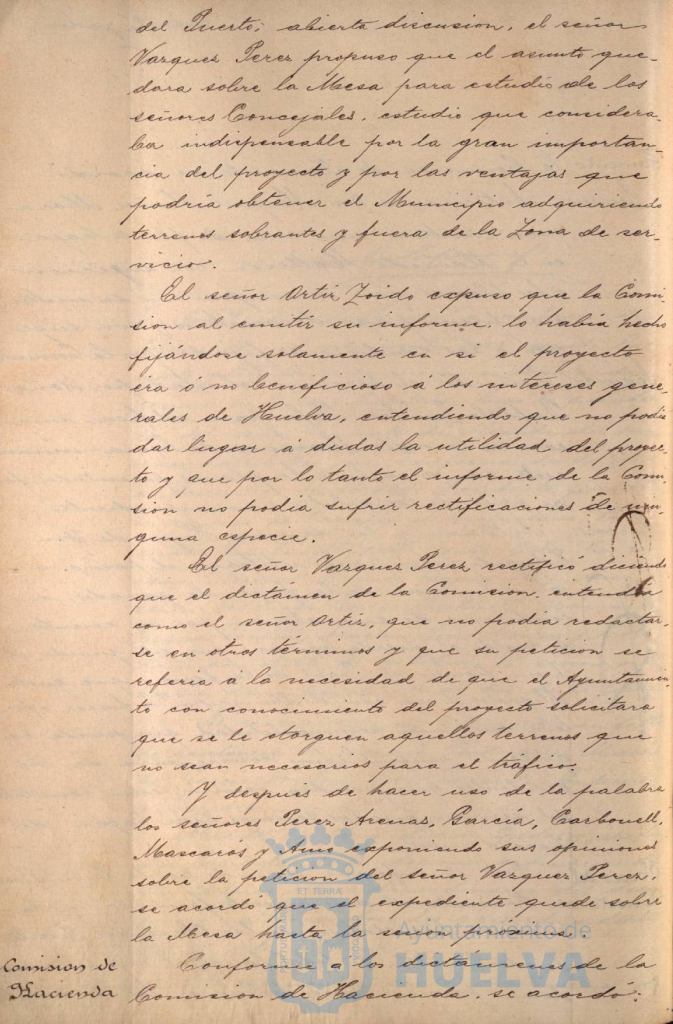 del Puerto; abierta discusion, el señor
Vazquez Perez propuso que el asunto que-
dara sobre la Mesa para estudio de los
señores Concejales, estudio que considera-
ba indispensable por la gran importan-
cia del proyecto y por las ventajas que
podría obtener el Municipio adquiriendo
terrenos sobrantes y fuera de la Zona de ser-
vicio.
El señor Ortiz Zoido expuso que la Comi-
sion al emitir su informe, lo había hecho
fijándose solamente en si el proyecto
era ó no beneficioso á los intereses gene-
rales de Huelva, entendiendo que no podia
dar lugar á dudas la utilidad del proyec-
to y que por lo tanto el informe de la Comi-
sion no podia sufrir rectificaciones de nin-
guna especie.
El señor Vazquez Perez rectificó diciendo
que el dictámen de la Comision, entendia
como el señor Ortiz, que no podia redactar-
se en otros términos y que su peticion se
referia á la necesidad de que el Ayuntamien-
to con conocimiento del proyecto solicitara
que se le otorguen aquellos terrenos que
no sean necesarios para el tráfico.
Y después de hacer uso de la palabra
los señores Perez Arenas, García, Carbonell,
Mascarós y Amo exponiendo sus opiniones
sobre la peticion del señor Vazquez Perez,
se acordó que el expediente quede sobre
la Mesa hasta la sesion próxima.
Comision de
Hacienda
Conforme a los dictámenes de la
Comision de Hacienda, se acordó:
ET TERRÆ
Ayuntamiento de
HUELVA